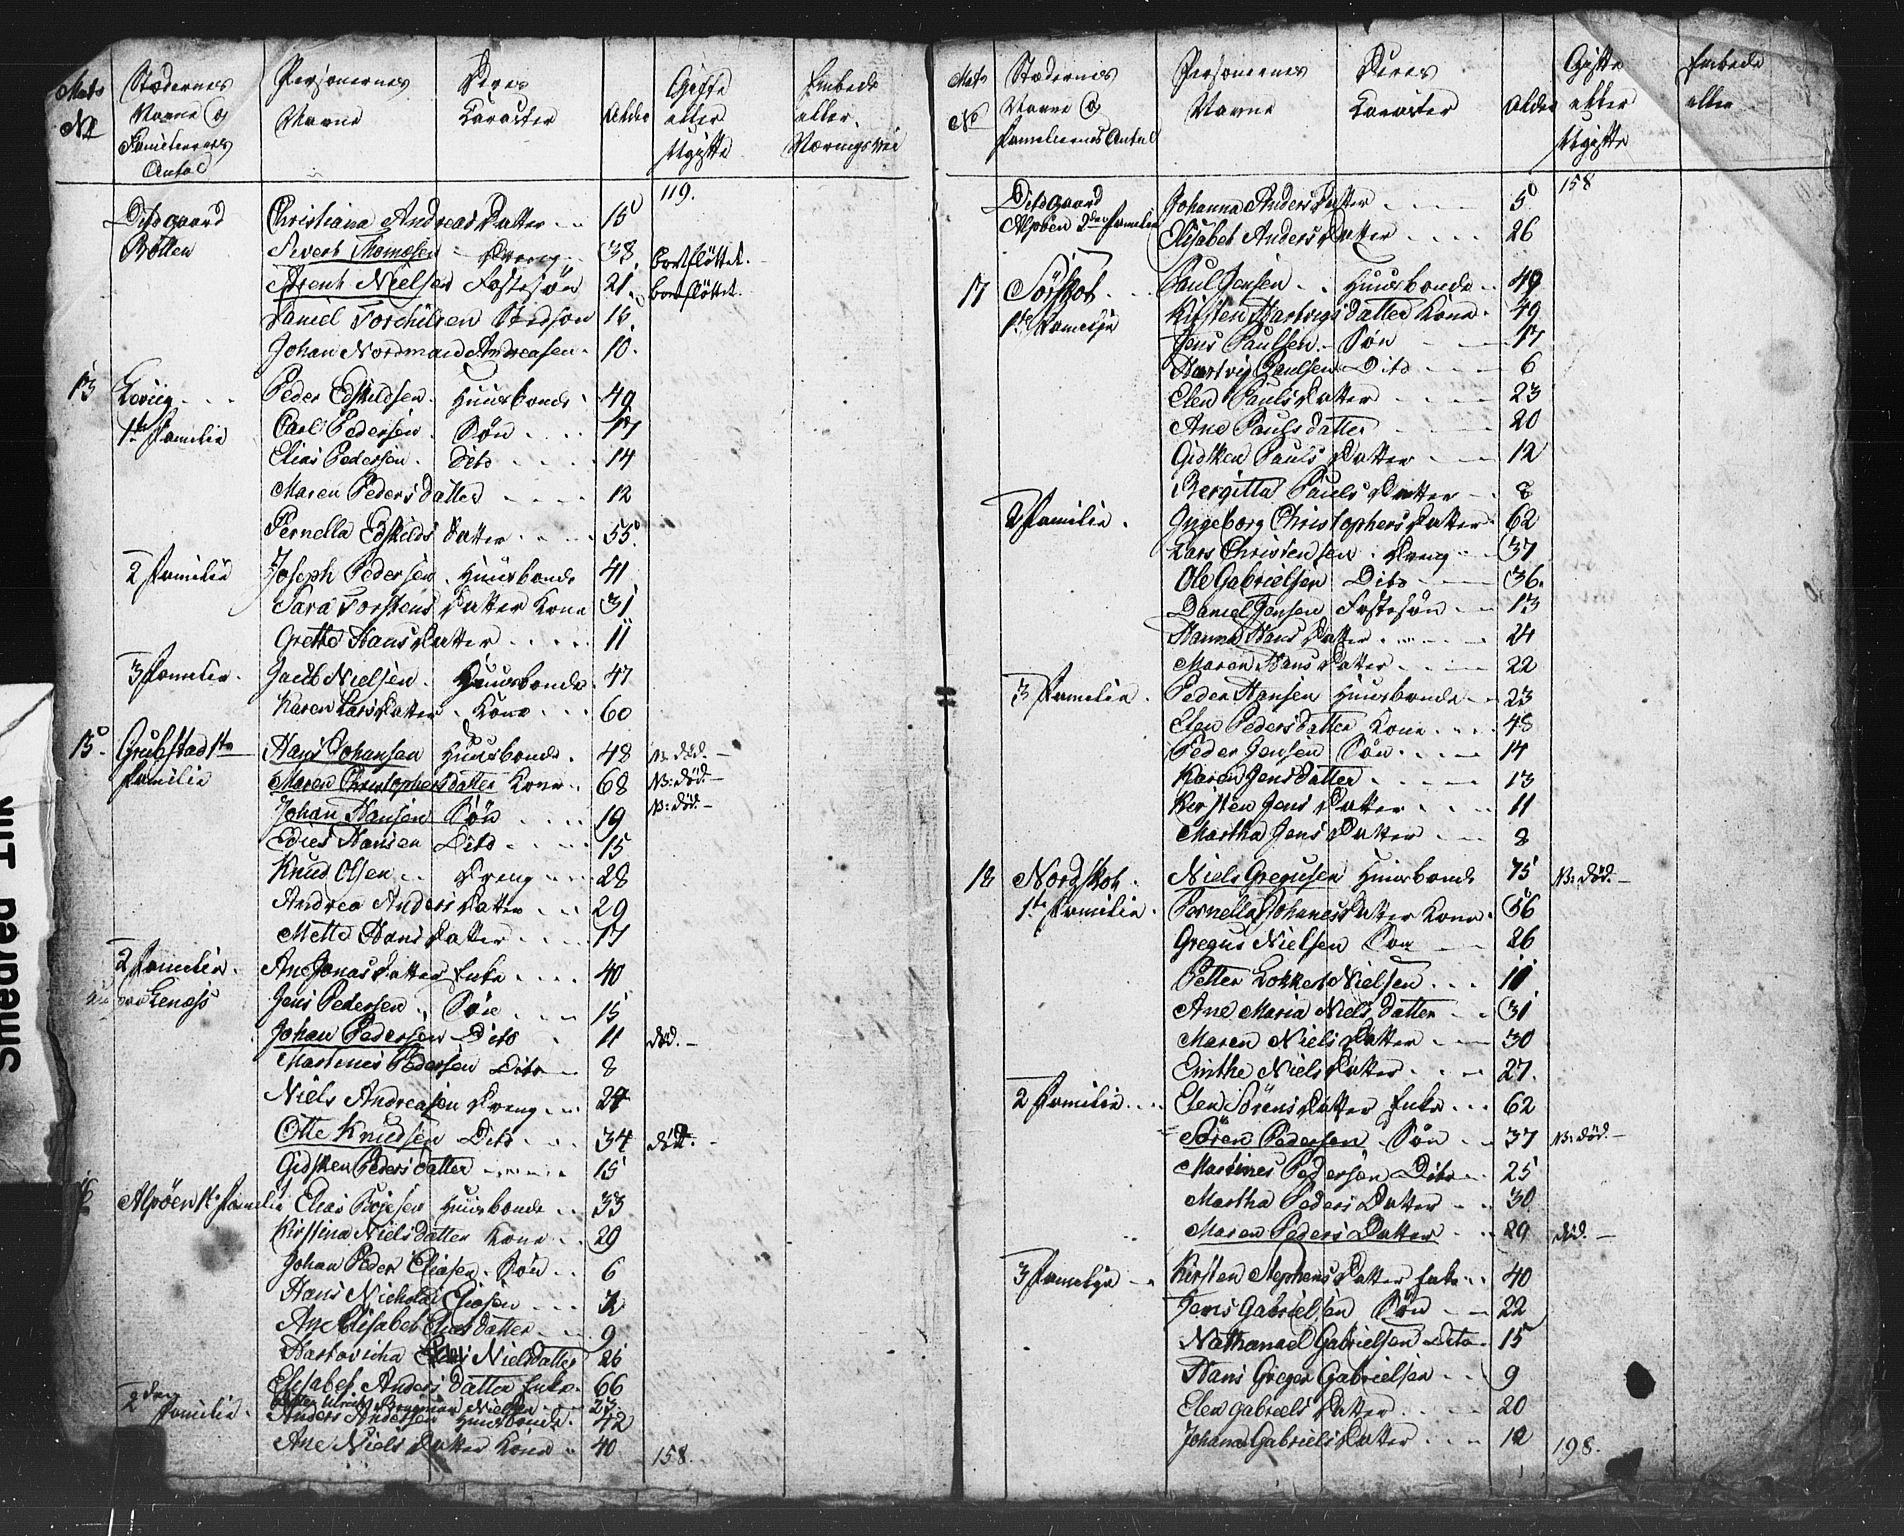 Matr Stædernes Personernes Deres Gifte Embede
No Navne og Navne Caracter Alder eller eller
Familiernes Ugifte Næringsvei
Antal
119.
Christiana Andreas Datter 15
Bøllen Sivert Thomæsen Dreng 38 bortfløttet.
Arent Nielsen Fostesön 21 bortfløttet.
Daniel Torchilsen 16
Johan Nordman Andreasen 10.
13 Peder Edskildsen Huusbonde 49
1te Familie Carl Pedersen Søn 17
Elias Pedersen Dito 14
Maren Pedersdatter 12
Pernella Edskilds Datter 55
2 Familie Joseph Pedersen Huusbonde 41
Sara Torstens Datter Kone 31
Grethe Hans Datter 11
3 Familie Jacob Nielsen Huusbonde 47
Karen Lars Datter Kone 60
15 Grubstad 1te Hans Johansen Huusbonde 48 N: död.
Familie Maren Christophersdatter Kone 68 N: död.
Johan Hansen Søn 19 N: död.
Hansen Dito 15
Knud Olsen Dreng 28
Andrea Anders Datter 29
Mette Hans Datter 17
2 Familie Ane Jonas Datter Enke 40
Jens Pedersen Søn 15
Johan Pedersen Dito 11 död.
Martinus Pedersen Dito 8
Niels Andreasen Dreng 24
Otte Knudsen Dito 34 död.
Gidsken Pedersdatter 15
16 Alpøen 1te Familie Elias Huusbonde 33
Kirstina Nielsdatter Kone 29
Johan Peder Eliasen Søn 6
Hans Nicholai Eliasen
Ane Elisabet Elias datter 9
Hartvicha Nielsdatter 26
Elisabet Andersdatter Enke 66
2den Familie Anders Andersen Huusbonde 42
Ane Niels Datter Kone 40 158.
Matr Stædernes Personernes Deres Gifte Embede
No Navne og Navne Caracter Alder eller eller
Familiernes Antal Ugifte
158
Johanna Anders Datter 5
Alpøen 2den Familie Elisabet Anders Datter 26
17 Sørskot Paul Jensen Huusbonde 49
1te Familie Kirsten Hartvigsdatter Kone 49
Jens Paulsen Søn 17
Hartvig Paulsen Dito 6
Elen Pauls Datter 23
Ane Pauls datter 20
Gidsken Pauls Datter 12
Bergitta Pauls Datter 8
2 Familie Ingeborg Christophers Datter 62
Lars Christensen Dreng 37
Ole Gabrielsen Dito 36
Daniel Jensen Fostesøn 13
Hanna Hans Datter 24
Maren Hans Datter 22
3 Familie Peder Hansen Huusbonde 23
Elen Pedersdatter Kone 48
Peder Jensen Søn 14
Karen Jensdatter 13
Kirsten Jens Datter 11
Martha Jens Datter 8
18 Nordskot Niels Gregusen Huusbonde 75 N: död.
1te Familie Pernella Johanes Datter Kone 56
Gregus Nielsen Søn 26
Petter Lokkert Nielsen 11
Ane Maria Niels datter 31
Maren Niels Datter 30
Niels Datter 27
2 Familie Elen Sörens Datter Enke 62
Sören Pedersen Søn 37 N: död.
Martines Pedersen Dito 25
Martha Peders Datter 30
Maren Peders Datter 29 död.
3 Familie Kirsten Stephens Datter Enke 40
Jens Gabrielsen Søn 22
Nathanael Gabrielsen Dito 15
Hans Greger Gabrielsen 9
Elen Gabriels Datter 20
Johana Gabriels Datter 12 198.